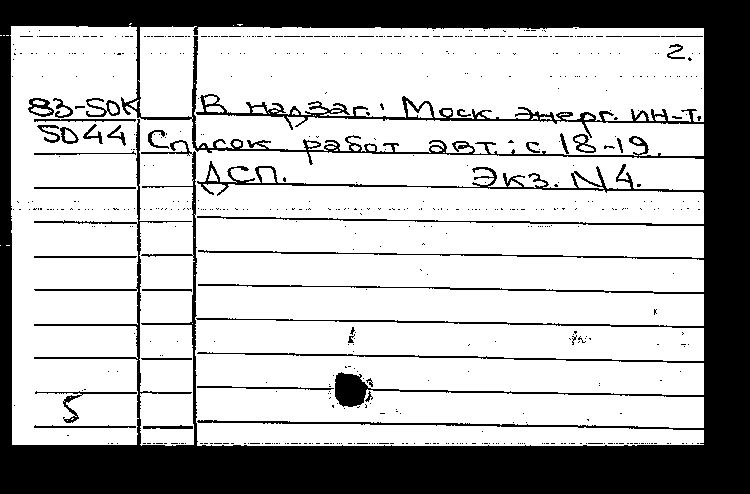 2.
83-50К В надзаг.: Моск. энерг. ин-т.
5044 Список работ авт.: с. 18-19.
ДСП. Экз. N4.
5